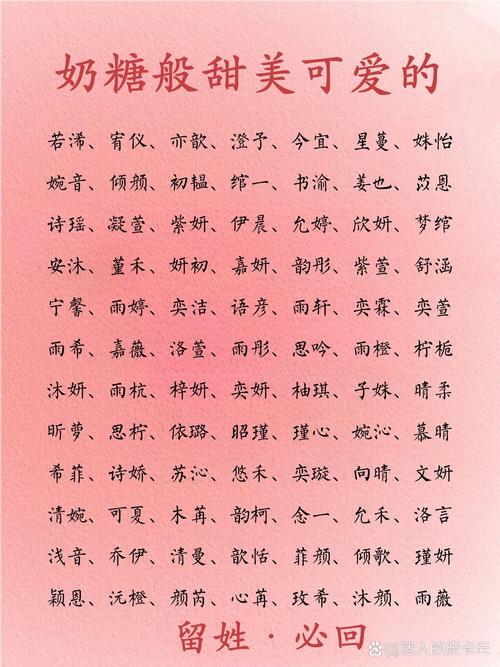 奶糖般甜美可爱的
若浠、宥仪、亦歆、澄予、今宜、星蔓、姝怡
婉音、倾颜、初韫、绾一、书渝、姜也、苡恩
诗瑶、凝萱、紫妍、伊晨、允婷、欣妍、梦绾
安沐、堇禾、妍初、嘉妍、韵彤、紫萱、舒涵
宁馨、雨婷、奕洁、语彦、雨轩、奕霖、奕萱
雨希、嘉薇、洛萱、雨彤、思吟、雨橙、柠栀
沐妍、雨杭、梓妍、奕妍、柚琪、子姝、晴柔
昕萝、思柠、依璐、昭瑾、瑾心、婉沁、慕晴
希菲、诗娇、苏沁、悠禾、奕璇、向晴、文妍
清婉、可夏、木苒、韵柯、念一、允禾、洛言
浅音、乔伊、清曼、歆恬、菲颜、倾歌、瑾妍
颖恩、沅橙、颜芮、心苒、玫希、沐颜、雨薇
留姓·必回